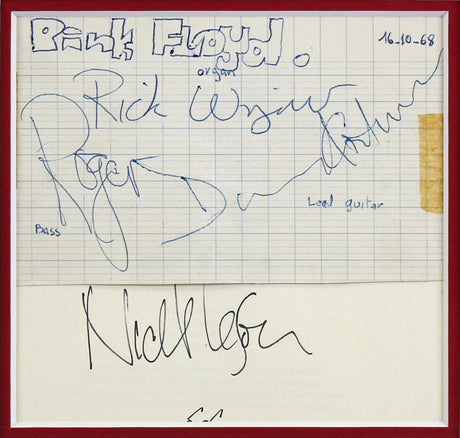 Pink Floyd.
16-10-68
organ
Rick Wright
Roger
David Gilmour
Lead guitar
Bass
Nick Mason